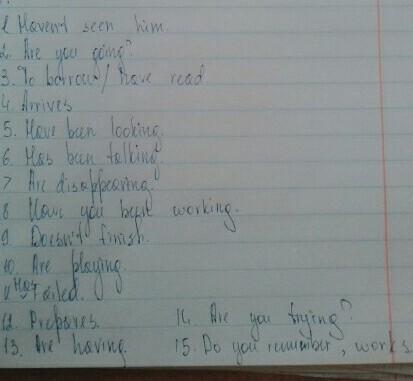 1 Haven't seen him.
2. Are you going?
3. To borrow / have read
4. Arrives
5. Have been looking.
6. Has been talking.
7 Are disappearing.
8 Have you been working.
9. Doesn't finish.
10. Are playing.
11 Has Failed.
12. Prepares. 14. Are you trying?
13. Are having. 15. Do you remember, works